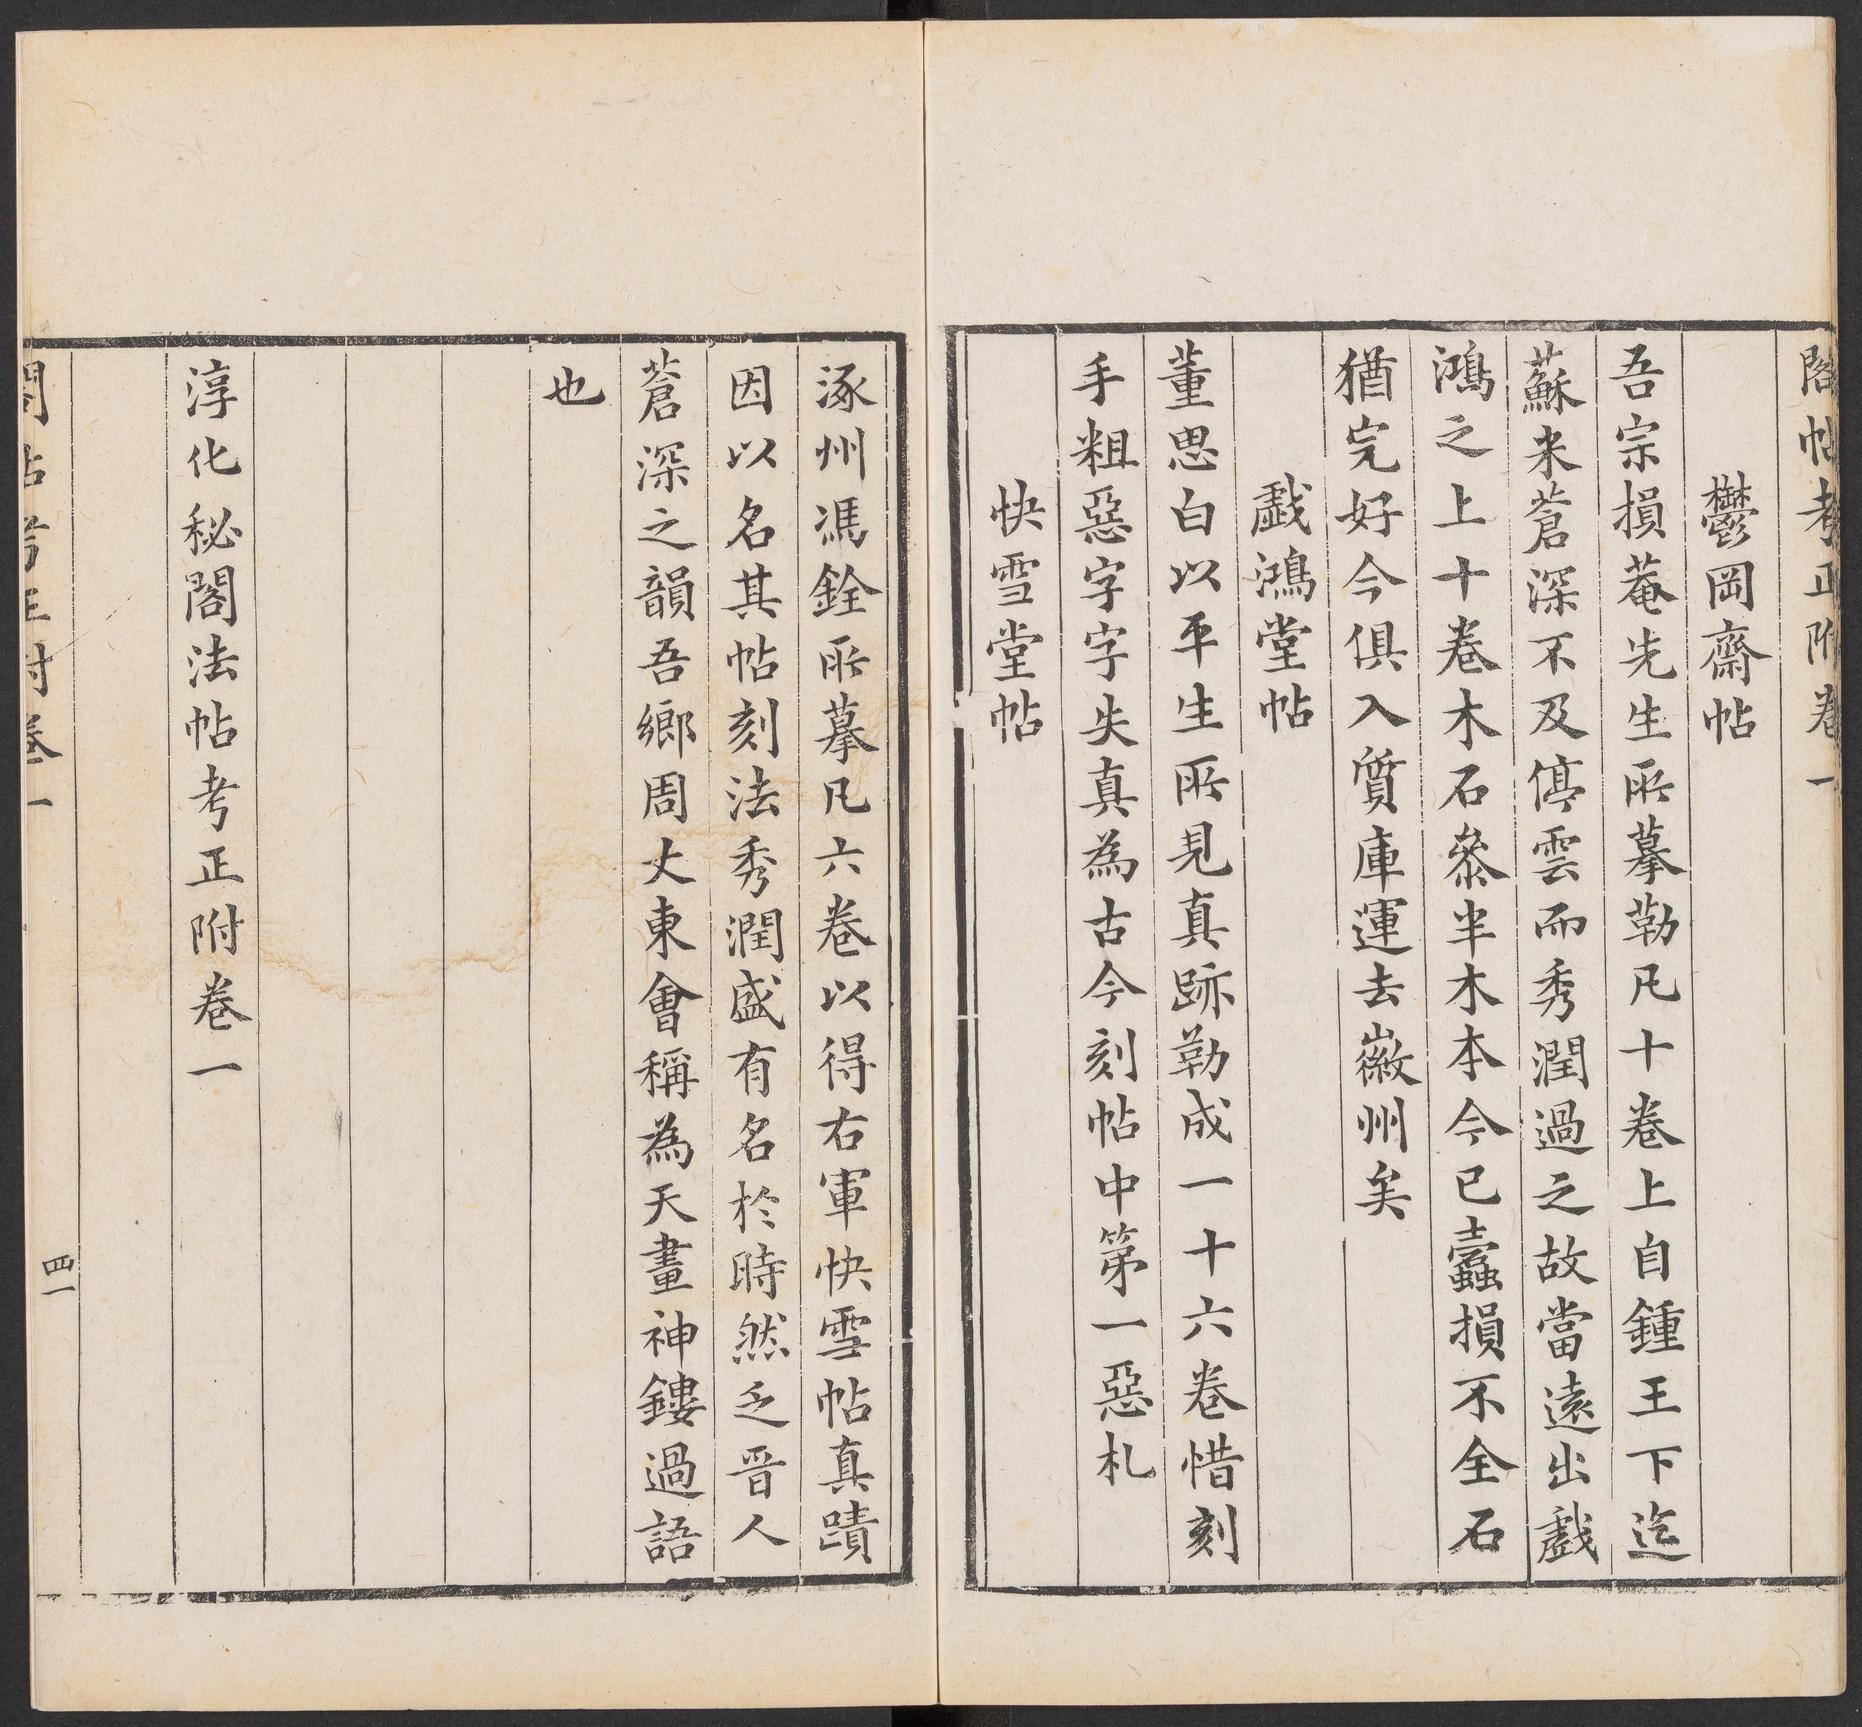 閣帖考正附卷一
鬱岡齋帖
吾宗損菴先生所摹勒凡十卷上自鍾王下迄
蘇米蒼深不及停雲而秀潤過之故當遠出戲
鴻之上十卷木石參半木本今已蠹損不全石
猶完好今俱入質庫運去徽州矣
戲鴻堂帖
董思白以平生所見真跡勒成一十六卷惜刻
手粗惡字字失真為古今刻帖中第一惡札
快雪堂帖
涿州馮銓所摹凡六卷以得右軍快雪帖真蹟
因以名其帖刻法秀潤盛有名於時然乏晉人
蒼深之韻吾鄉周丈東會稱為天畫神鏤過語
也
淳化秘閣法帖考正附卷一
閣帖考正附卷一
四一